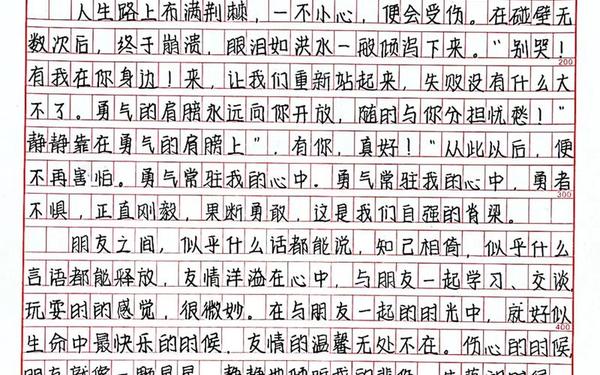 人生路上布满荆棘，一不小心，便会受伤。在碰壁无
数次后，终于崩溃，眼泪如洪水一般倾泻下来。"别哭！
200
有我在你身边！来，让我们重新站起来，失败没有什么大
不了。勇气的肩膀永远向你开放，随时与你分担忧愁！"
静静靠在勇气的肩膀上"，有你，真好！"从此以后，便
不再害怕。勇气常驻我的心中。勇气常驻我的心中，勇者
300
不惧，正直刚毅，果断勇敢，这是我们自强的脊梁。
朋友之间，似乎什么话都能说，知己相倚，似乎什么
言语都能释放，友情洋溢在心中，与朋友一起学习、交谈
玩耍时的感觉，很微妙。在与朋友一起的时光中，就好似
400
生命中最快乐的时候，友情的温馨无处不在。伤心的时候，
朋友就像一颗星星，静静地倾听我的悲伤，